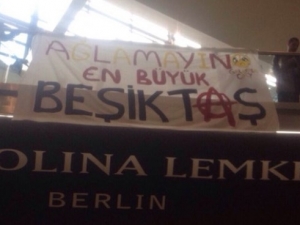 AGLAMAYIN
EN BÜYÜK
BEŞİKTAŞ
OLINA LEMK
BERLIN